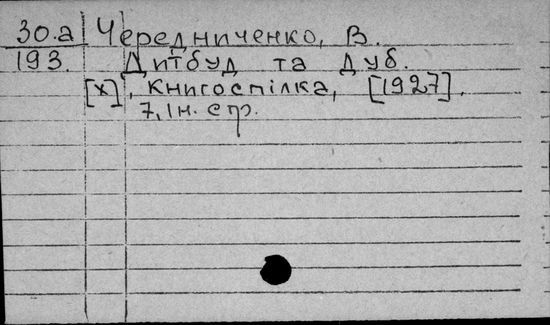 30.а Чередниченко, В.
193. Дитбуд та дуб.
[х], Книгоспілка, [1927].
7, Ін. стр.